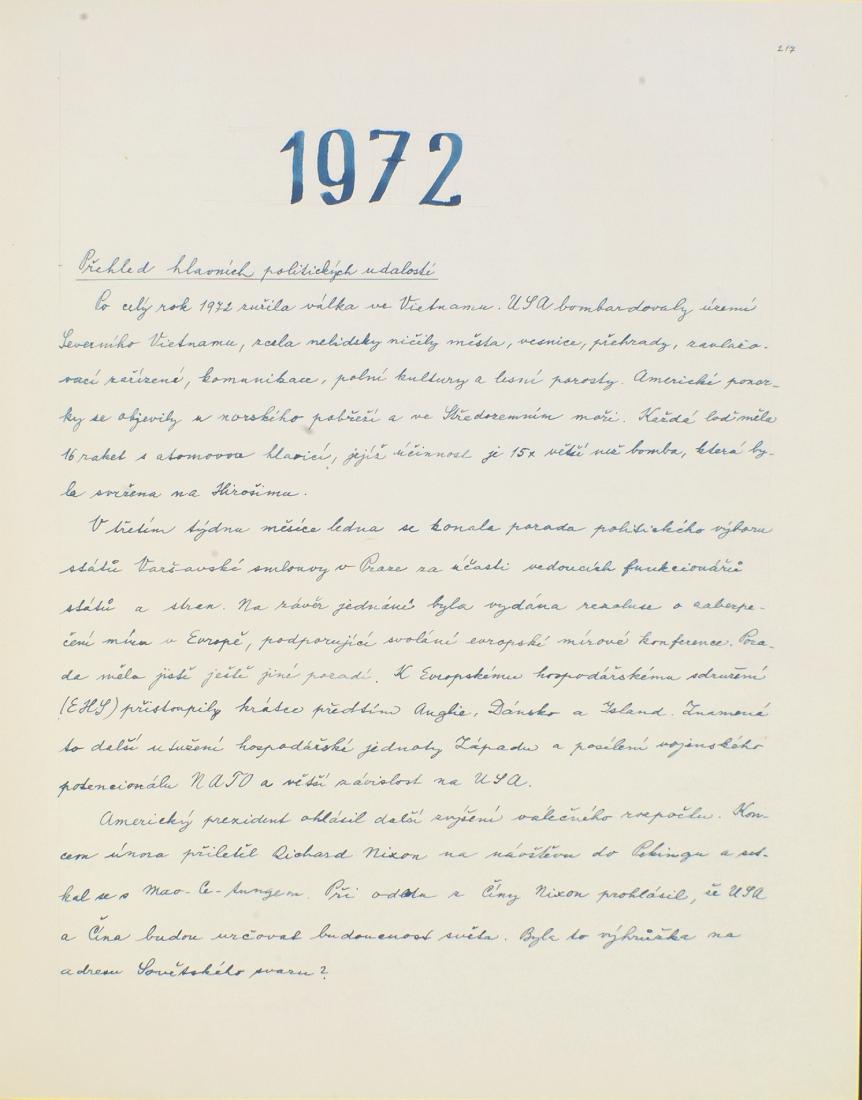 217
1972
Přehled hlavních politických událostí
Po celý rok 1972 zuřila válka ve Vietnamu. USA bombardovaly území
Severního Vietnamu, zcela nelidsky ničily města, vesnice, přehrady, zavlažo-
vací zařízené, komunikace, polní kultury a lesní porosty. Americké ponor-
ky se objevily u norského pobřeží a ve Středozemním moři. Každá loď měla
16 raket s atomovou hlavicí, jejíž účinnost je 15x větší než bomba, která by-
la svržena na Hirošimu.
V třetím týdnu měsíce ledna se konala porada politického výboru
států Varšavské smlouvy v Praze za účasti vedoucích funkcionářů
států a stran. Na závěr jednání byla vydána rezoluse o zabezpe-
čení míru v Evropě, podporující svolání evropské mírové konference. Pora-
da měla jistě ještě jiné poradí. K Evropskému hospodářskému sdružení
(EHS) přistoupily krátce předtím Anglie, Dánsko a Island. Znamená
to další utužení hospodářské jednoty Západu a posílení vojenského
potencionálu NATO a větší závislost na USA.
Americký prezident ohlásil další zvýšení válečného rozpočtu. Kon-
cem února přiletěl Richard Nixon na návštěvu do Pekingu a set-
kal se s Mao-Ce-tungem. Při odletu z Číny Nixon prohlásil, že USA
a Čína budou určovat budoucnost světa. Byla to výhrůžka na
adresu Sovětského svazu?